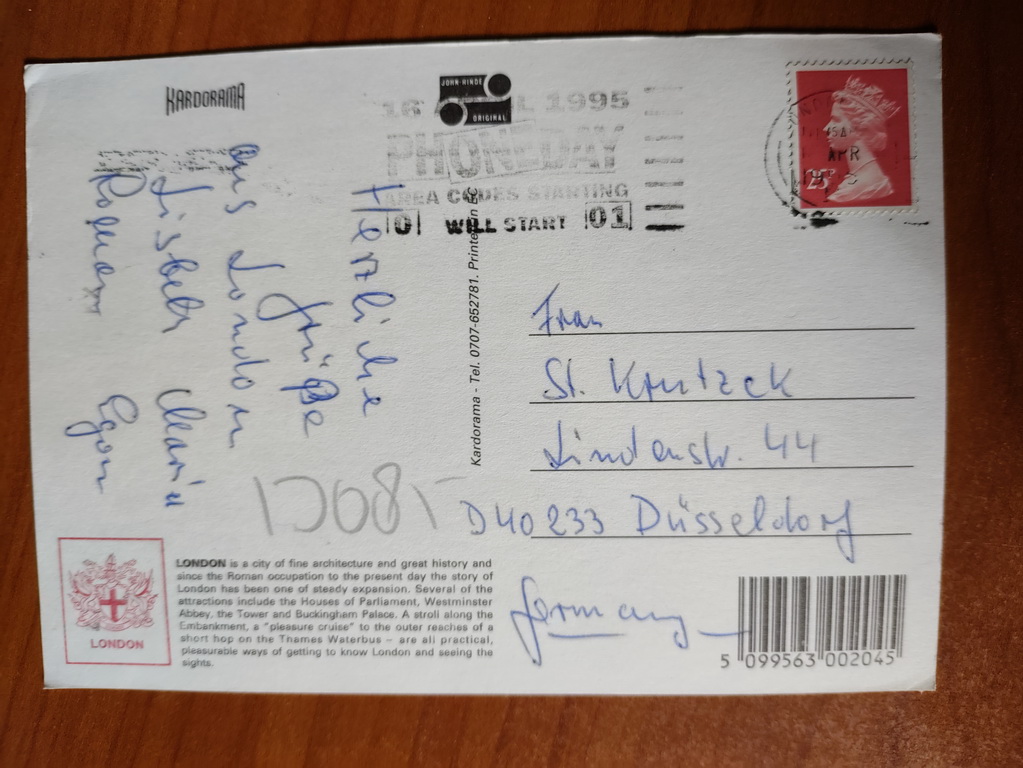 KARDORAMA
JOHN HINDE
ORIGINAL
16 APRIL 1995
PHONEDAY
AREA CODES STARTING
0 WILL START 01
APR
25
Herzliche
Grüße
aus London
Lisbeth Maria
Egon
Kardorama - Tel. 0707-652781. Printed in EC
Frau
St. Krutzek
Lindenstr. 44
D 40 233 Düsseldorf
Germany
LONDON
LONDON is a city of fine architecture and great history and
since the Roman occupation to the present day the story of
London has been one of steady expansion. Several of the
attractions include the Houses of Parliament, Westminster
Abbey, the Tower and Buckingham Palace. A stroll along the
Embankment, a "pleasure cruise" to the outer reaches of a
short hop on the Thames Waterbus – are all practical,
pleasurable ways of getting to know London and seeing the
sights.
5 099563 002045